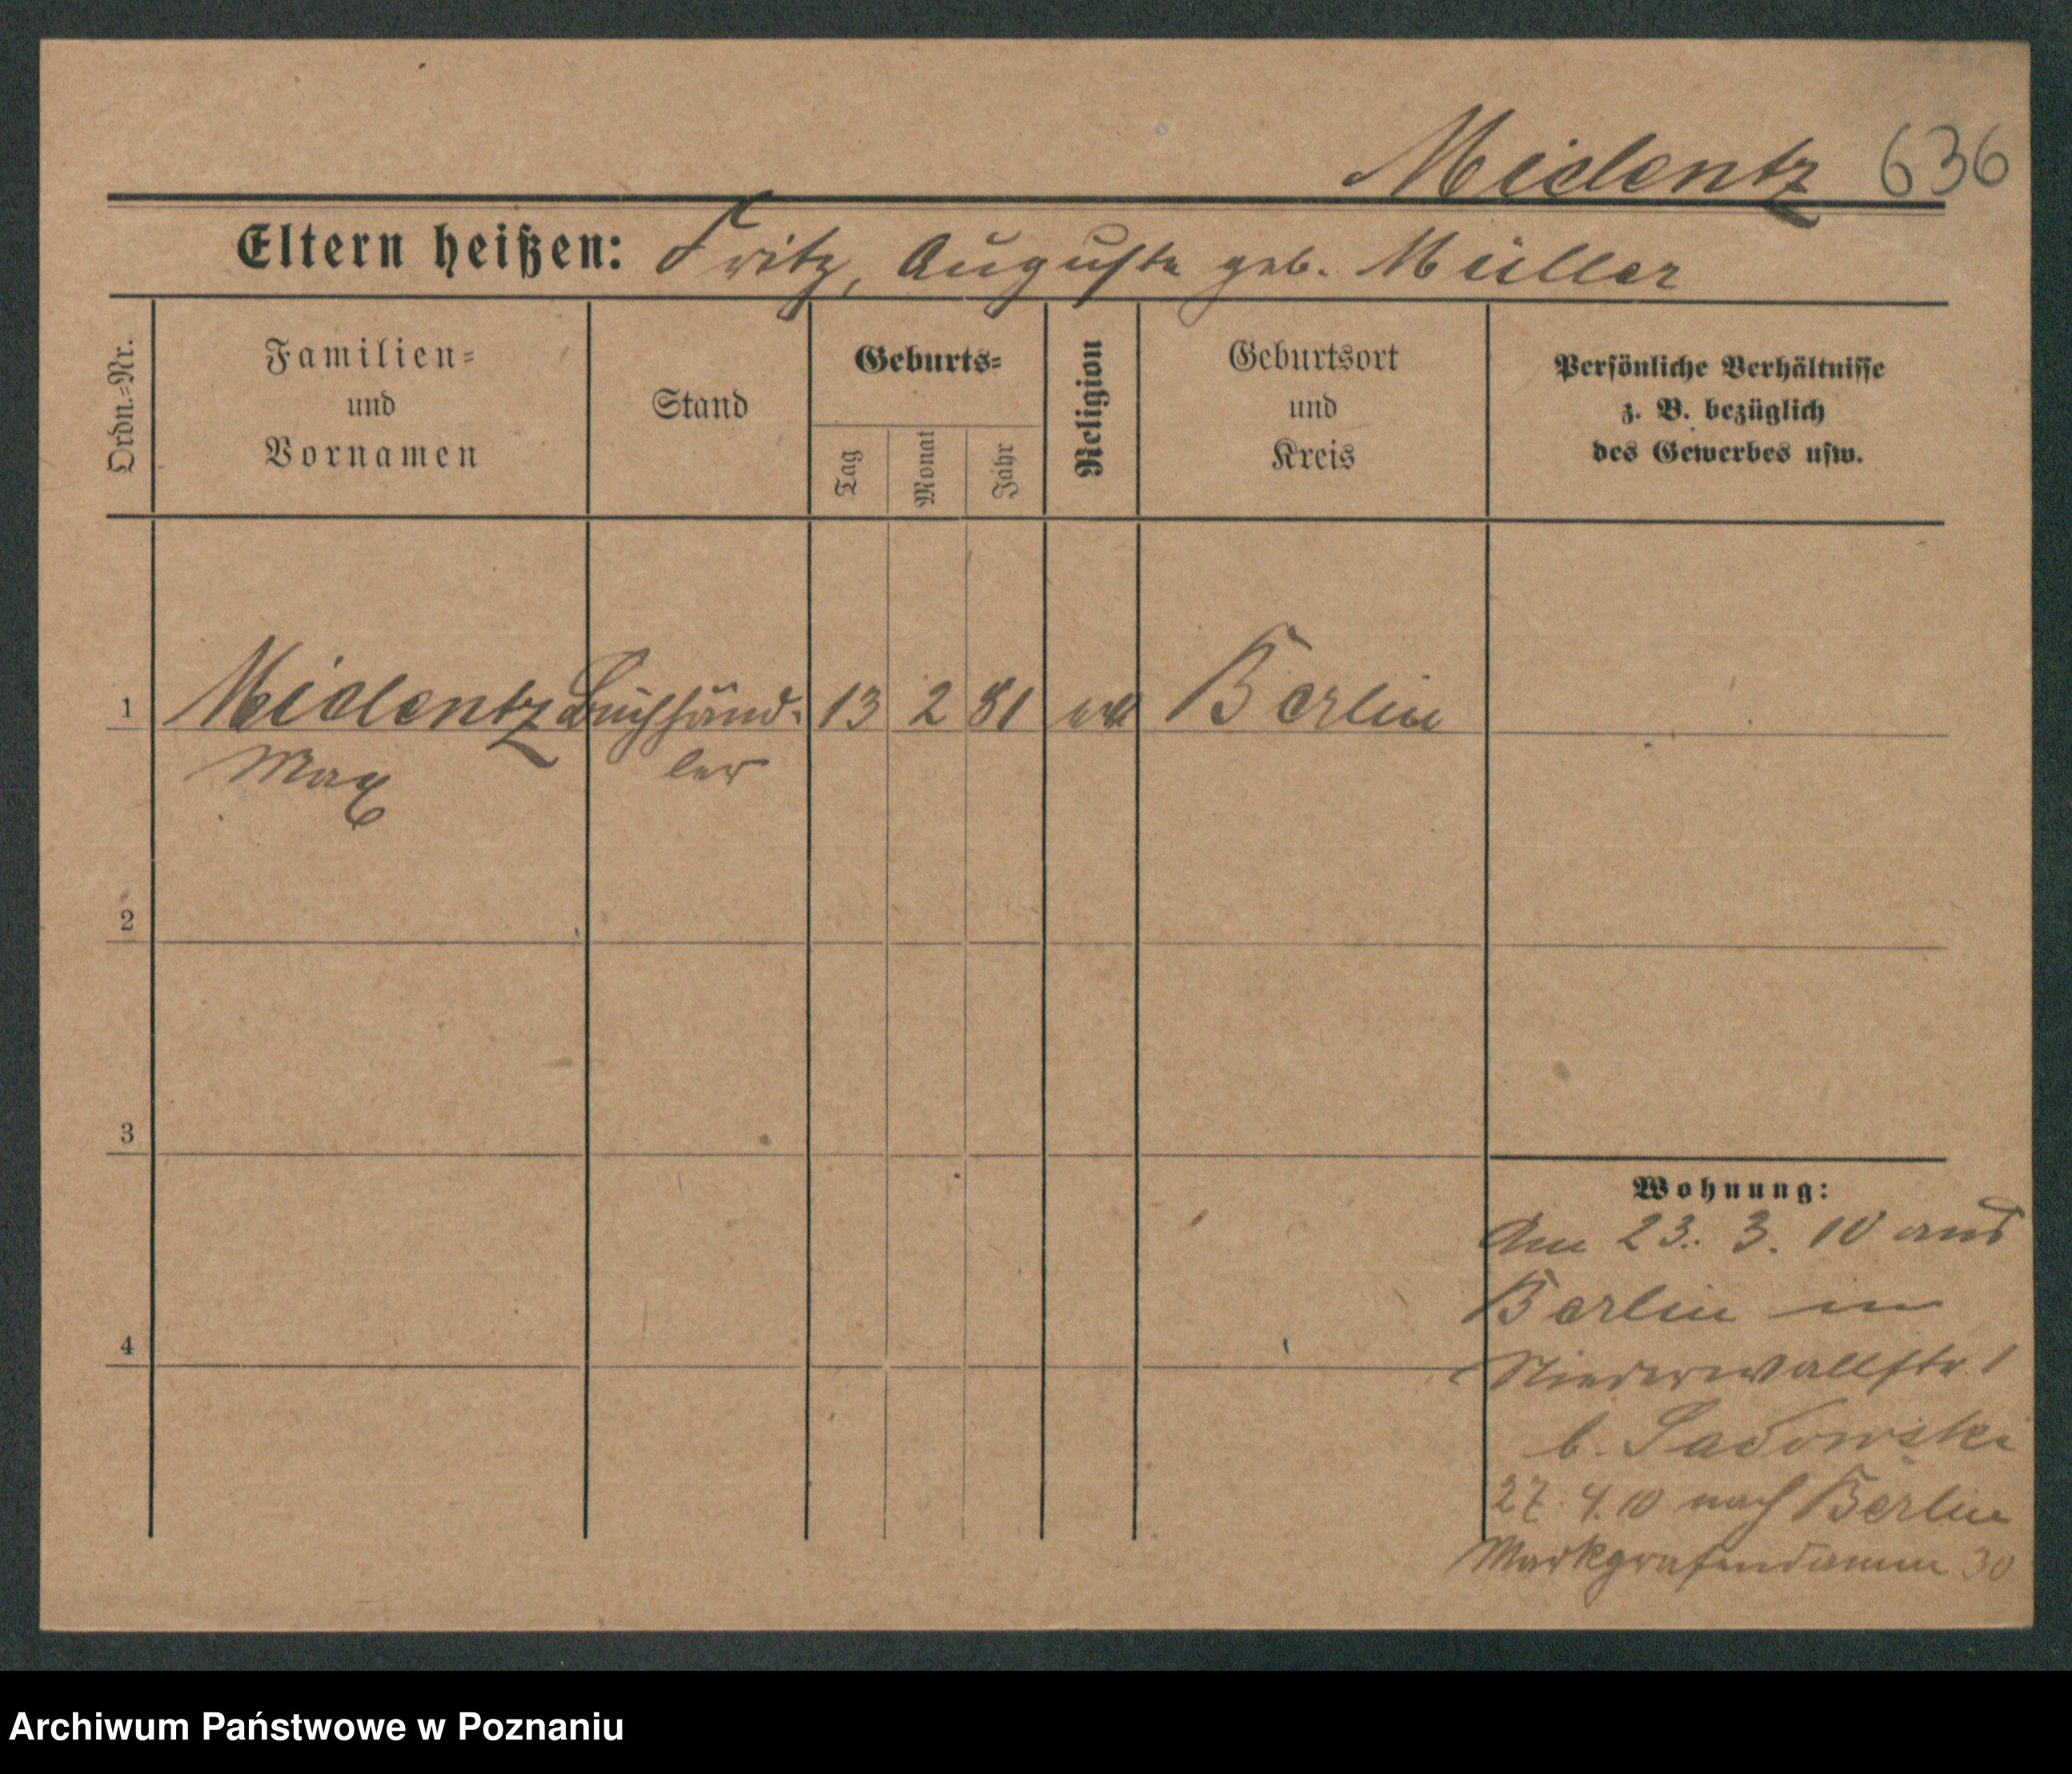 Midentz 636
Eltern heißen: Fritz, Auguste geb. Müller
Ordn.-Nr.
Familien-
und
Vornamen
Stand
Geburts-
Tag
Monat
Jahr
Religion
Geburtsort
und
Kreis
Persönliche Verhältnisse
z. B. bezüglich
des Gewerbes usw.
1 Midentz Buchhänd- 13 2 81 Berlin
Max ler
2
3
4
Wohnung:
Am 23. 3. 10 aus
Berlin in
Niederwallstr. 1
b. Sadowski
27. 4. 10 nach Berlin
Markgrafendamm 30
Archiwum Państwowe w Poznaniu